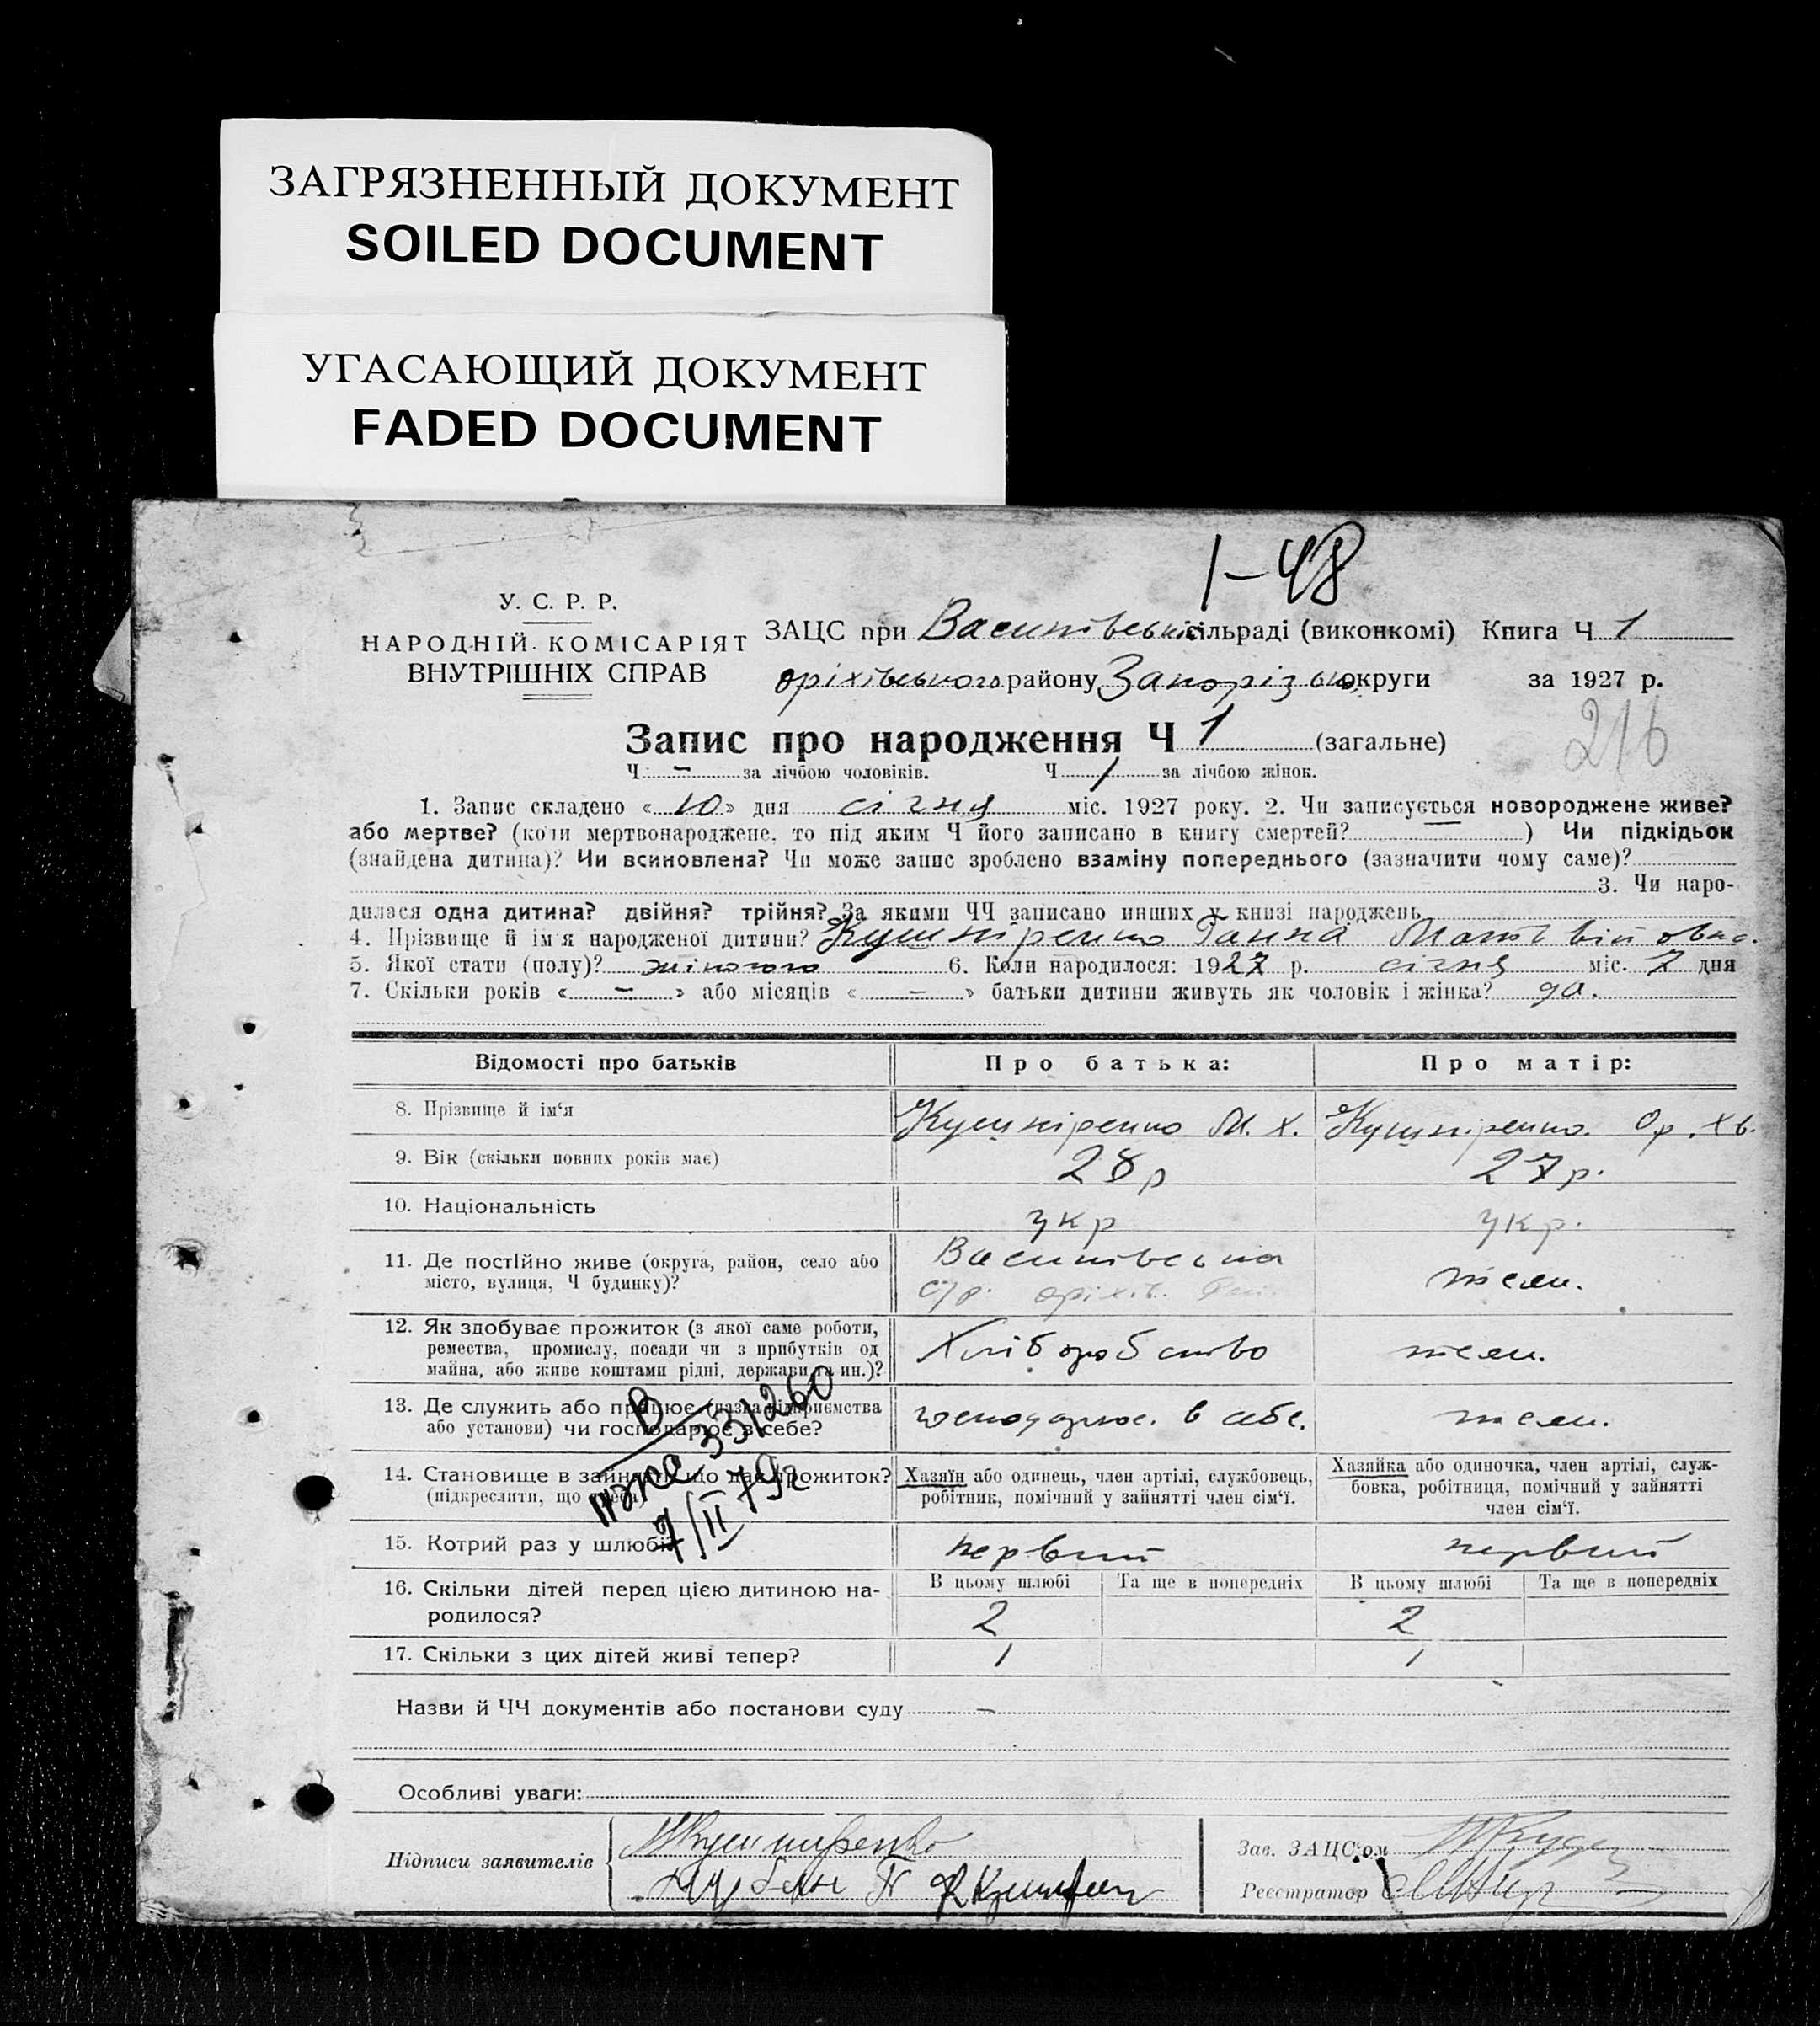 ЗАГРЯЗНЕННЫЙ ДОКУМЕНТ
SOILED DOCUMENT
УГАСАЮЩИЙ ДОКУМЕНТ
FADED DOCUMENT
1-48
У. С. Р. Р.
НАРОДНІЙ КОМІСАРІЯТ
ВНУТРІШНІХ СПРАВ
ЗАЦС при Василівській сільраді (виконкомі) Книга Ч 1
оріхівського району Запорізької округи за 1927 р.
216
Запис про народження Ч 1 (загальне)
Ч — за лічбою чоловіків. Ч 1 за лічбою жінок.
1. Запис складено « 10 » дня січня міс. 1927 року. 2. Чи записується новороджене живе?
або мертве? (коли мертвонароджене, то під яким Ч його записано в книгу смертей? ) Чи підкідьок
(знайдена дитина)? Чи всиновлена? Чи може запис зроблено взаміну попереднього (зазначити чому саме)?
3. Чи наро-
дилася одна дитина? двійня? трійня? За якими ЧЧ записано инших у книзі народжень
4. Прізвище й ім'я народженої дитини? Кушніренко Ганна Матвійовна.
5. Якої стати (полу)? жіночого 6. Коли народилося: 1927 р. січня міс. 7 дня
7. Скільки років « — » або місяців « — » батьки дитини живуть як чоловік і жінка? да.
Відомості про батьків Про батька: Про матір:
8. Прізвище й ім'я Кушніренко М. Х. Кушніренко Ор. Хв.
9. Вік (скільки повних років має) 28 р 27 р.
10. Національність укр укр.
11. Де постійно живе (округа, район, село або
місто, вулиця, Ч будинку)? Василівська
с/р. оріхів. теж.
12. Як здобуває прожиток (з якої саме роботи,
ремества, промислу, посади чи з прибутків од
майна, або живе коштами рідні, держави та ин.)? Хліборобство теж.
13. Де служить або працює (назва підприємства
або установи) чи господарює в себе? господарює. в себе. теж.
331260
7/II 79г
14. Становище в зайнятті, що дає прожиток?
(підкреслити, що треба)
Хазяїн або одинець, член артілі, службовець,
робітник, помічний у зайнятті член сім'ї.
Хазяйка або одиночка, член артілі, служ-
бовка, робітниця, помічний у зайнятті
член сім'ї.
15. Котрий раз у шлюбі? первий первий
16. Скільки дітей перед цією дитиною на-
родилося?
В цьому шлюбі Та ще в попередніх В цьому шлюбі Та ще в попередніх
2 2
17. Скільки з цих дітей живі тепер? 1 1
Назви й ЧЧ документів або постанови суду —
Особливі уваги:
Підписи заявителів
Зав. ЗАЦС'ом
Реєстратор